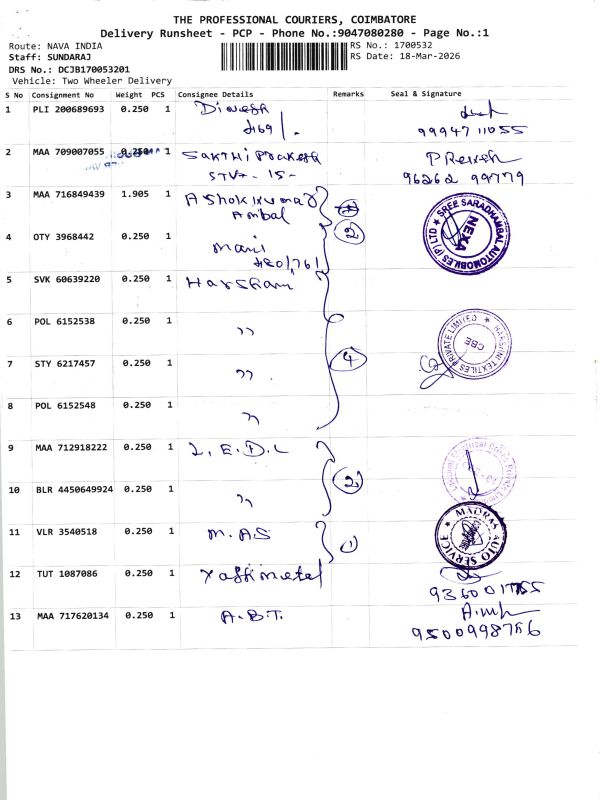 THE PROFESSIONAL COURIERS, COIMBATORE
Delivery Runsheet - PCP - Phone No.:9047080280 - Page No.:1
Route: NAVA INDIA
RS No.: 1700532
Staff: SUNDARAJ
RS Date: 18-Mar-2026
DRS No.: DCJB170053201
Vehicle: Two Wheeler Delivery
S No Consignment No Weight PCS Consignee Details Remarks Seal & Signature
1 PLI 200689693 0.250 1 Dinesh
9994711055
2 MAA 709007055 0.250 1 Sakthi Prakash
96262 99779
3 MAA 716849439 1.905 1 Ashok Kumar
Ambal
SREE SARADHAMBAL AUTOMOBILES (P) LTD
NEXA
2
4 OTY 3968442 0.250 1 Mani
5 SVK 60639220 0.250 1 Harshani
6 POL 6152538 0.250 1 ,,
HARSINI TEXTILES PRIVATE LIMITED
CBE
7 STY 6217457 0.250 1 ,,
4
8 POL 6152548 0.250 1 ,,
9 MAA 712918222 0.250 1 L.E.D.L
2
10 BLR 4450649924 0.250 1 ,,
11 VLR 3540518 0.250 1 M.AS
1
MADRAS AUTO SERVICE
12 TUT 1087086 0.250 1
13 MAA 717620134 0.250 1 A.B.T.
9500998756